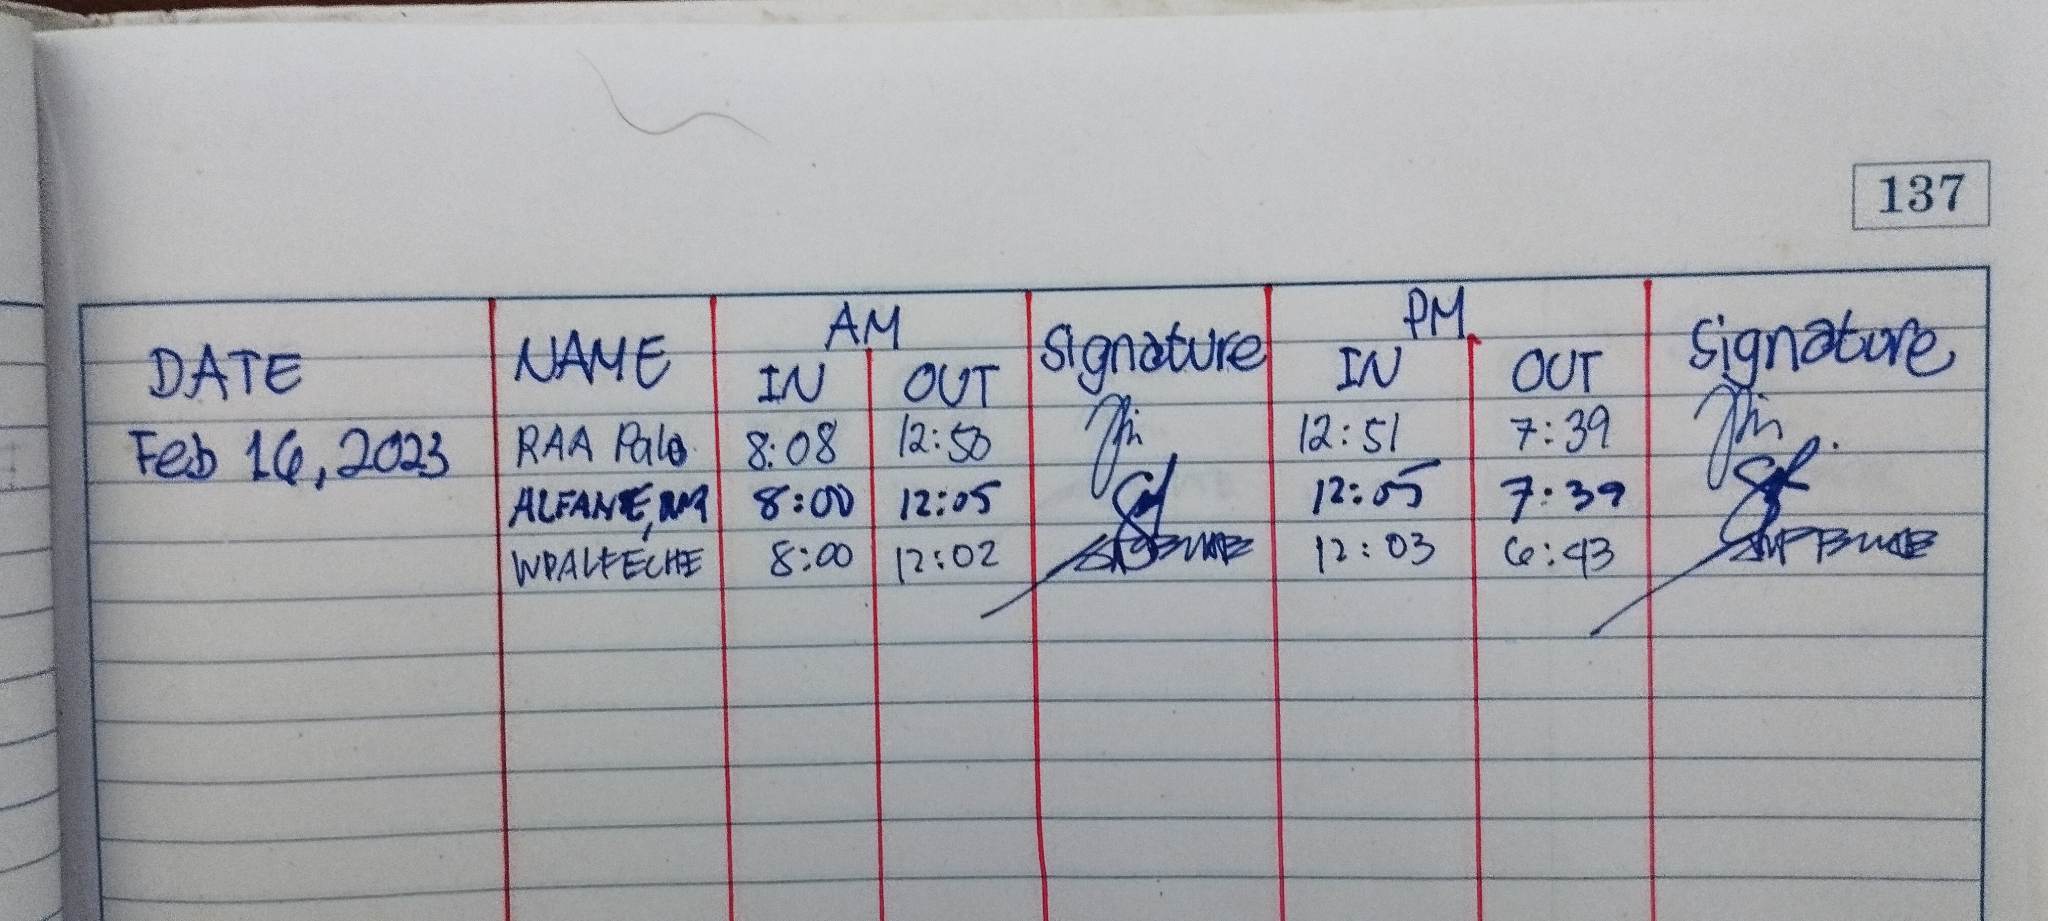 137
DATE NAME AM Signature PM Signature
IN OUT IN OUT
Feb 16, 2023 RAA Palo 8:08 12:50 12:51 7:39
ALFANTE, 8:00 12:05 12:05 7:39
WPALFECHE 8:00 12:02 12:03 6:43